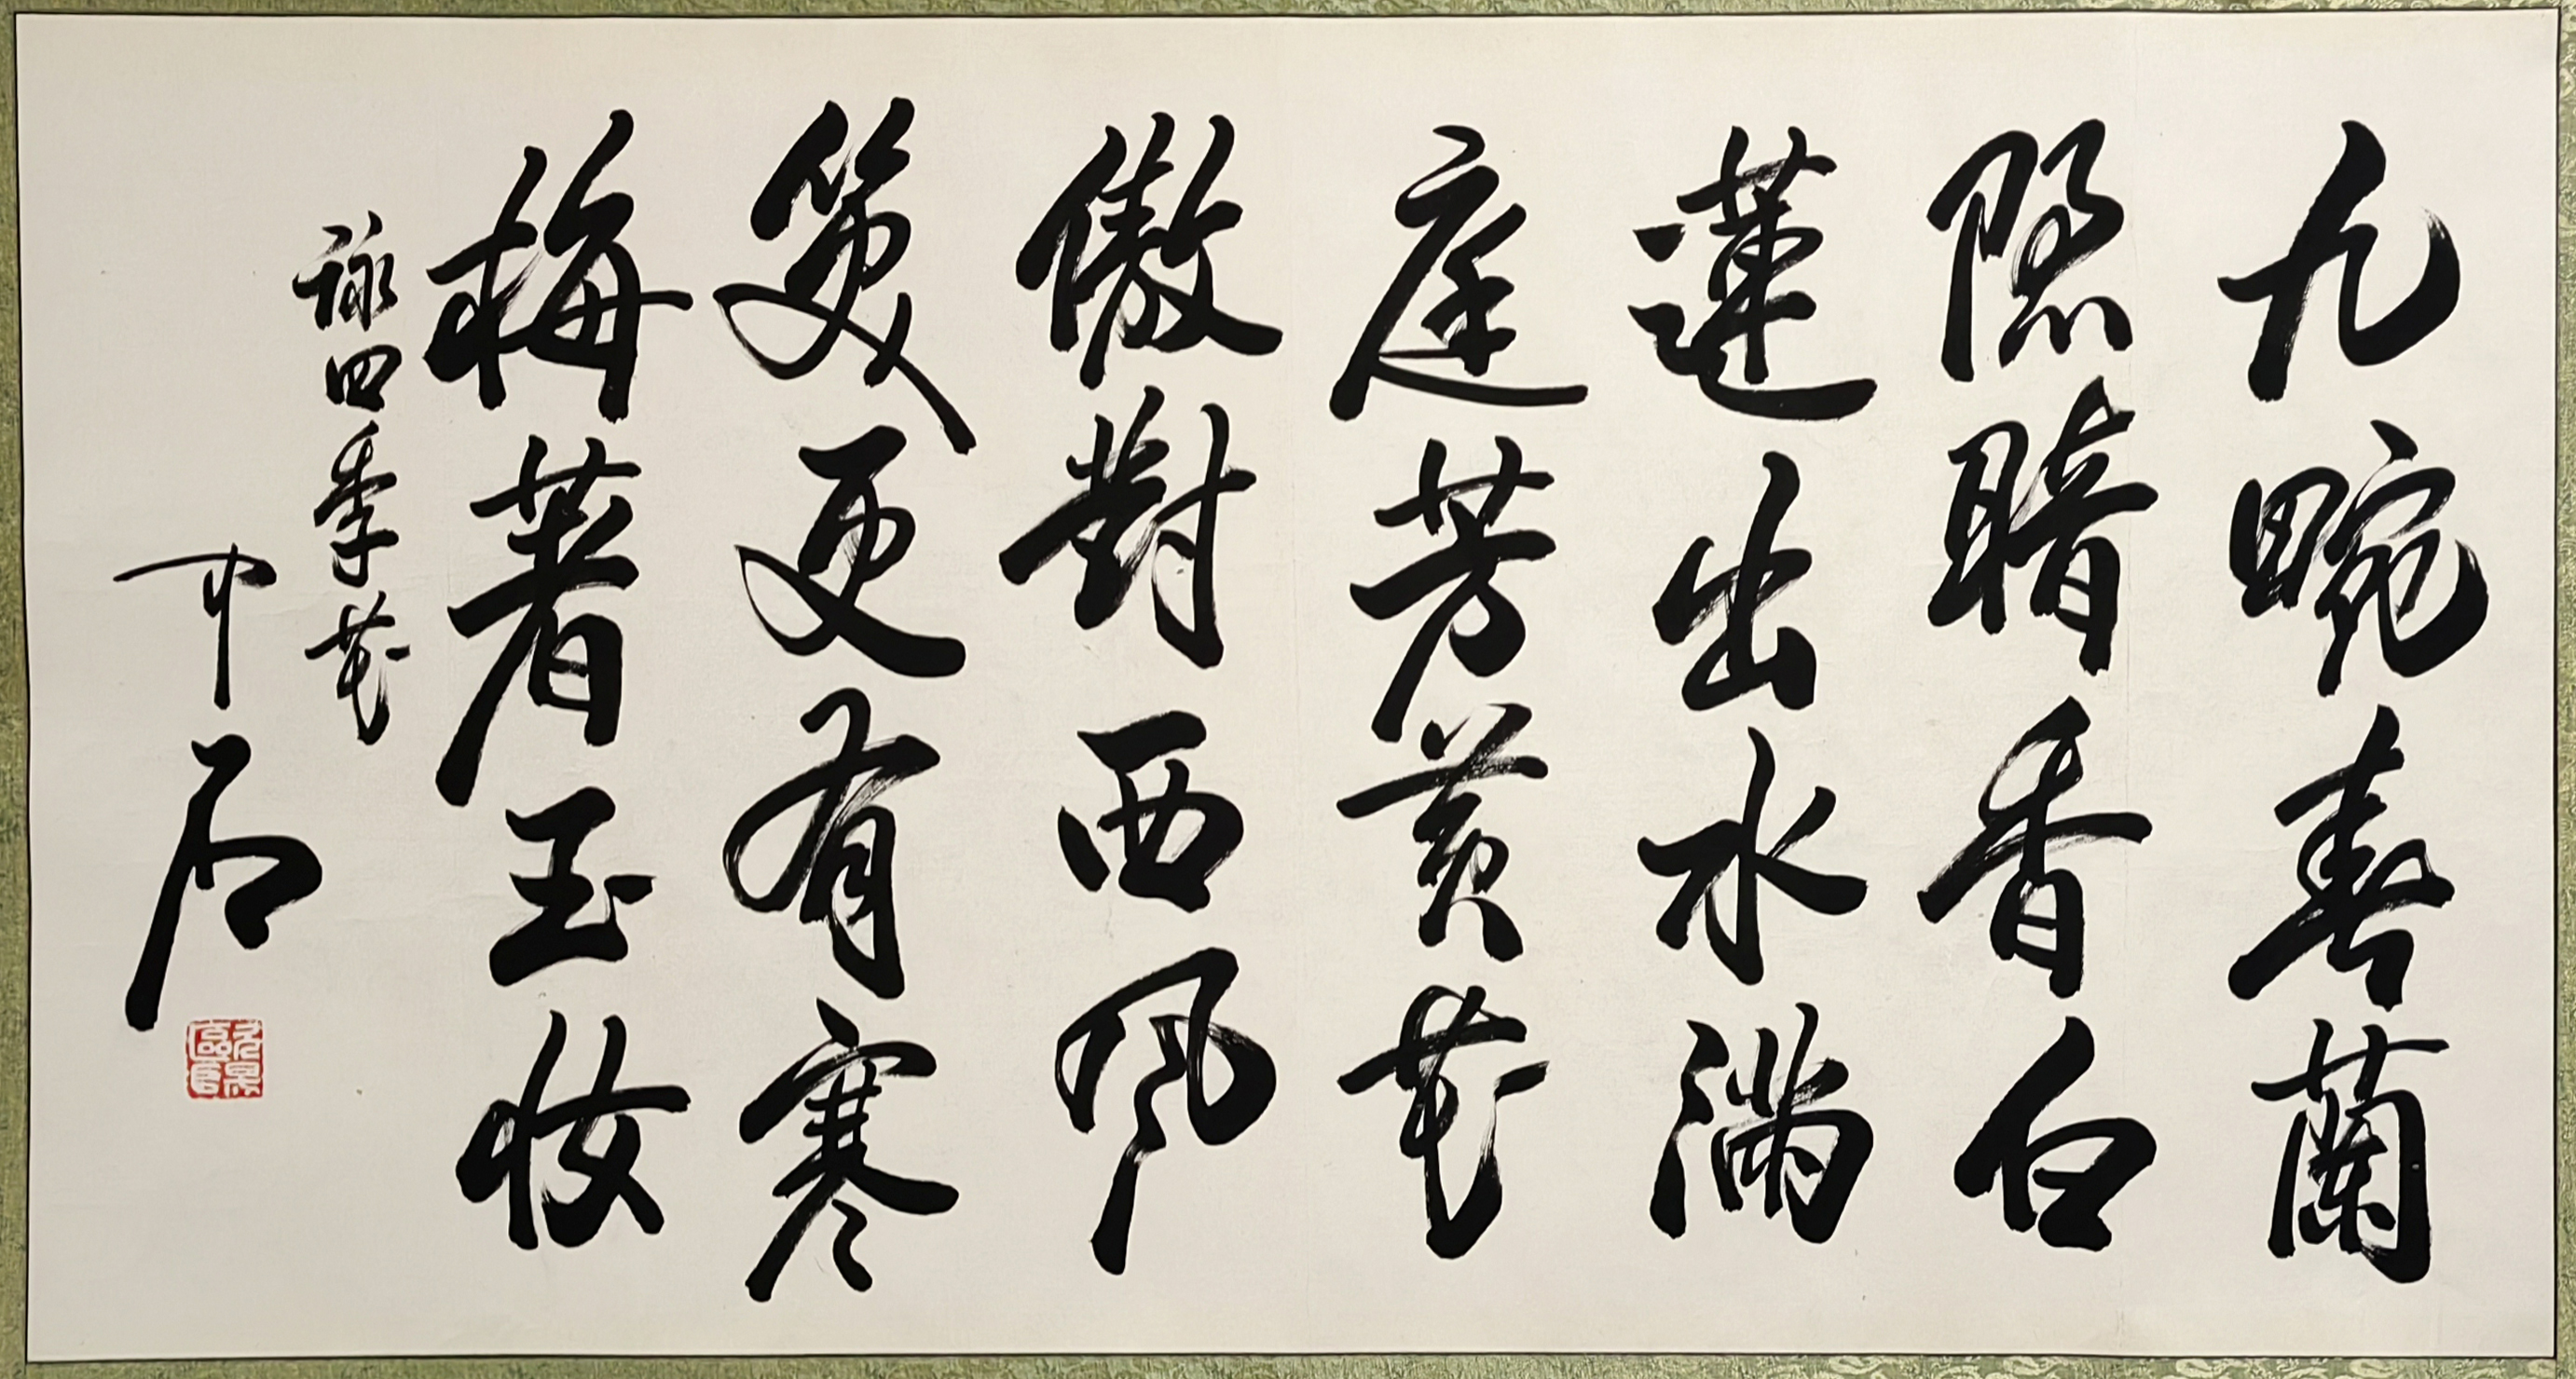 九畹春蘭
隱暗香白
蓮出水滿
庭芳黄花
傲對西風
笑更有寒
梅著玉妝
詠四季花
中石